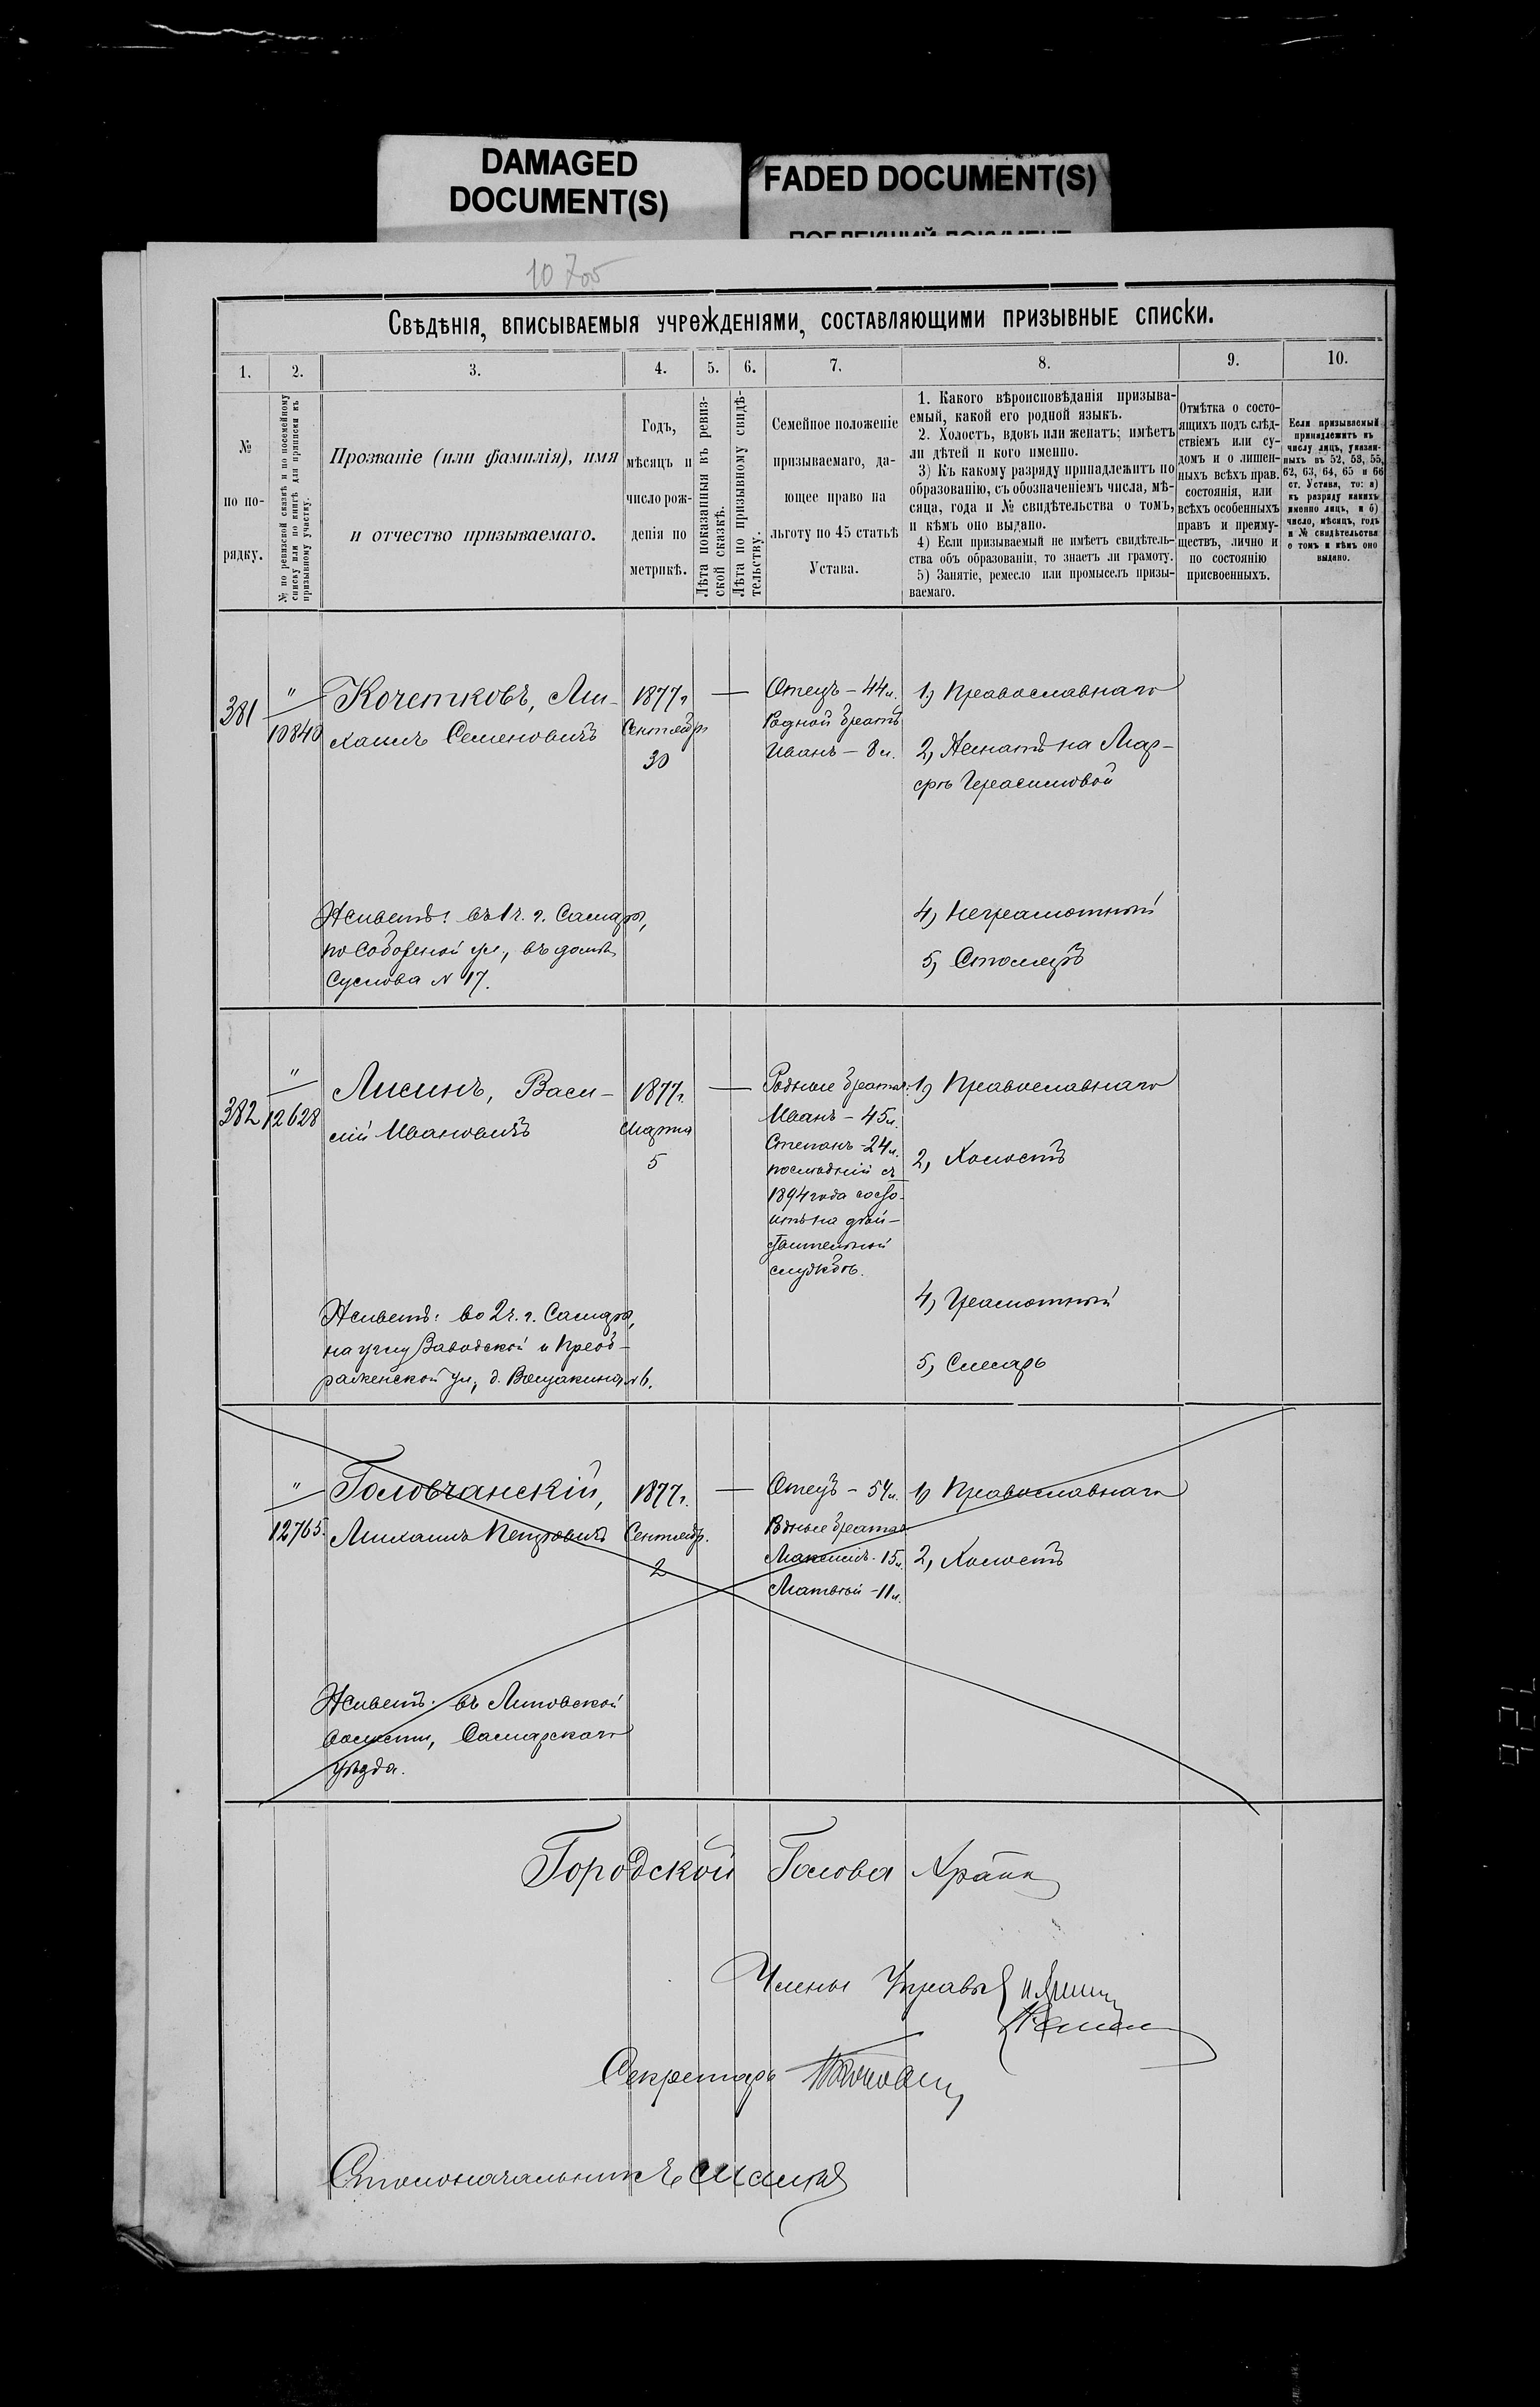 DAMAGED
DOCUMENT(S)
FADED DOCUMENT(S)
ПОБЛЕКШИЙ ДОКУМЕНТ
10700
Свѣдѣнія, вписываемыя учрежденіями, составляющими призывные списки.
1.
2.
3.
4.
5.
6.
7.
8.
9.
10.
№
по по-
рядку.
№ по ревизской сказкѣ и по посемейному
списку или по книгѣ для приписки къ
призывному участку.
Прозваніе (или фамилія), имя
и отчество призываемаго.
Годъ,
мѣсяцъ и
число рож-
денія по
метрикѣ.
Лѣта показанныя въ ревиз-
ской сказкѣ.
Лѣта по призывному свидѣ-
тельству.
Семейное положеніе
призываемаго, да-
ющее право на
льготу по 45 статьѣ
Устава.
1. Какого вѣроисповѣданія призыва-
емый, какой его родной языкъ.
2. Холостъ, вдовъ или женатъ; имѣетъ
ли дѣтей и кого именно.
3) Къ какому разряду принадлежитъ по
образованію, съ обозначеніемъ числа, мѣ-
сяца, года и № свидѣтельства о томъ,
и кѣмъ оно выдано.
4) Если призываемый не имѣетъ свидѣтель-
ства объ образованіи, то знаетъ ли грамоту.
5) Занятіе, ремесло или промыселъ призы-
ваемаго.
Отмѣтка о состо-
ящихъ подъ слѣд-
ствіемъ или су-
домъ и о лишен-
ныхъ всѣхъ прав.
состоянія, или
всѣхъ особенныхъ
правъ и преиму-
ществъ, лично и
по состоянію
присвоенныхъ.
Если призываемый
принадлежитъ къ
числу лицъ, указан-
ныхъ въ 52, 53, 55,
62, 63, 64, 65 и 66
ст. Устава, то: а)
къ разряду какихъ
именно лицъ, и б)
число, мѣсяцъ, годъ
и № свидѣтельства
о томъ и кѣмъ оно
выдано.
381
"
10840
Кочетковъ, Ми-
хаилъ Семеновичъ
1877 г
Сентябр
30
—
Отецъ – 44 л.
Родной братъ
Иванъ – 8 л.
1) Православнаго
2, Женатъ на Мар-
фѣ Герасимовой
4, Неграмотный
5, Столяръ
Живетъ: въ 1 ч. г. Самары,
по Соборной ул., въ домѣ
Суслова № 17.
382
"
12628
Лисинъ, Васи-
лій Ивановичъ
1877 г.
Марта
5
—
Родные братья:
Иванъ – 45 л.
Степанъ – 24 л.
послѣдній съ
1894 года состо-
итъ на дѣй-
ствительной
службѣ.
1) Православнаго
2, Холостъ
4, Грамотный
5, Слесарь
Живетъ: во 2 ч. г. Самары,
на углу Заводской и Преоб-
раженской ул., д. Вощакина № 6.
"
12765.
Головчанскій,
Михаилъ Петровичъ
1877 г.
Сентябр.
2
—
Отецъ – 54 л.
Родные братья
Максимъ - 15 л.
Матвѣй – 11 л.
1) Православнаго
2, Холостъ
Живетъ: въ Липовской
волости, Самарскаго
уѣзда.
Городской Голова
Члены Управы
Секретарь
Столоначальникъ